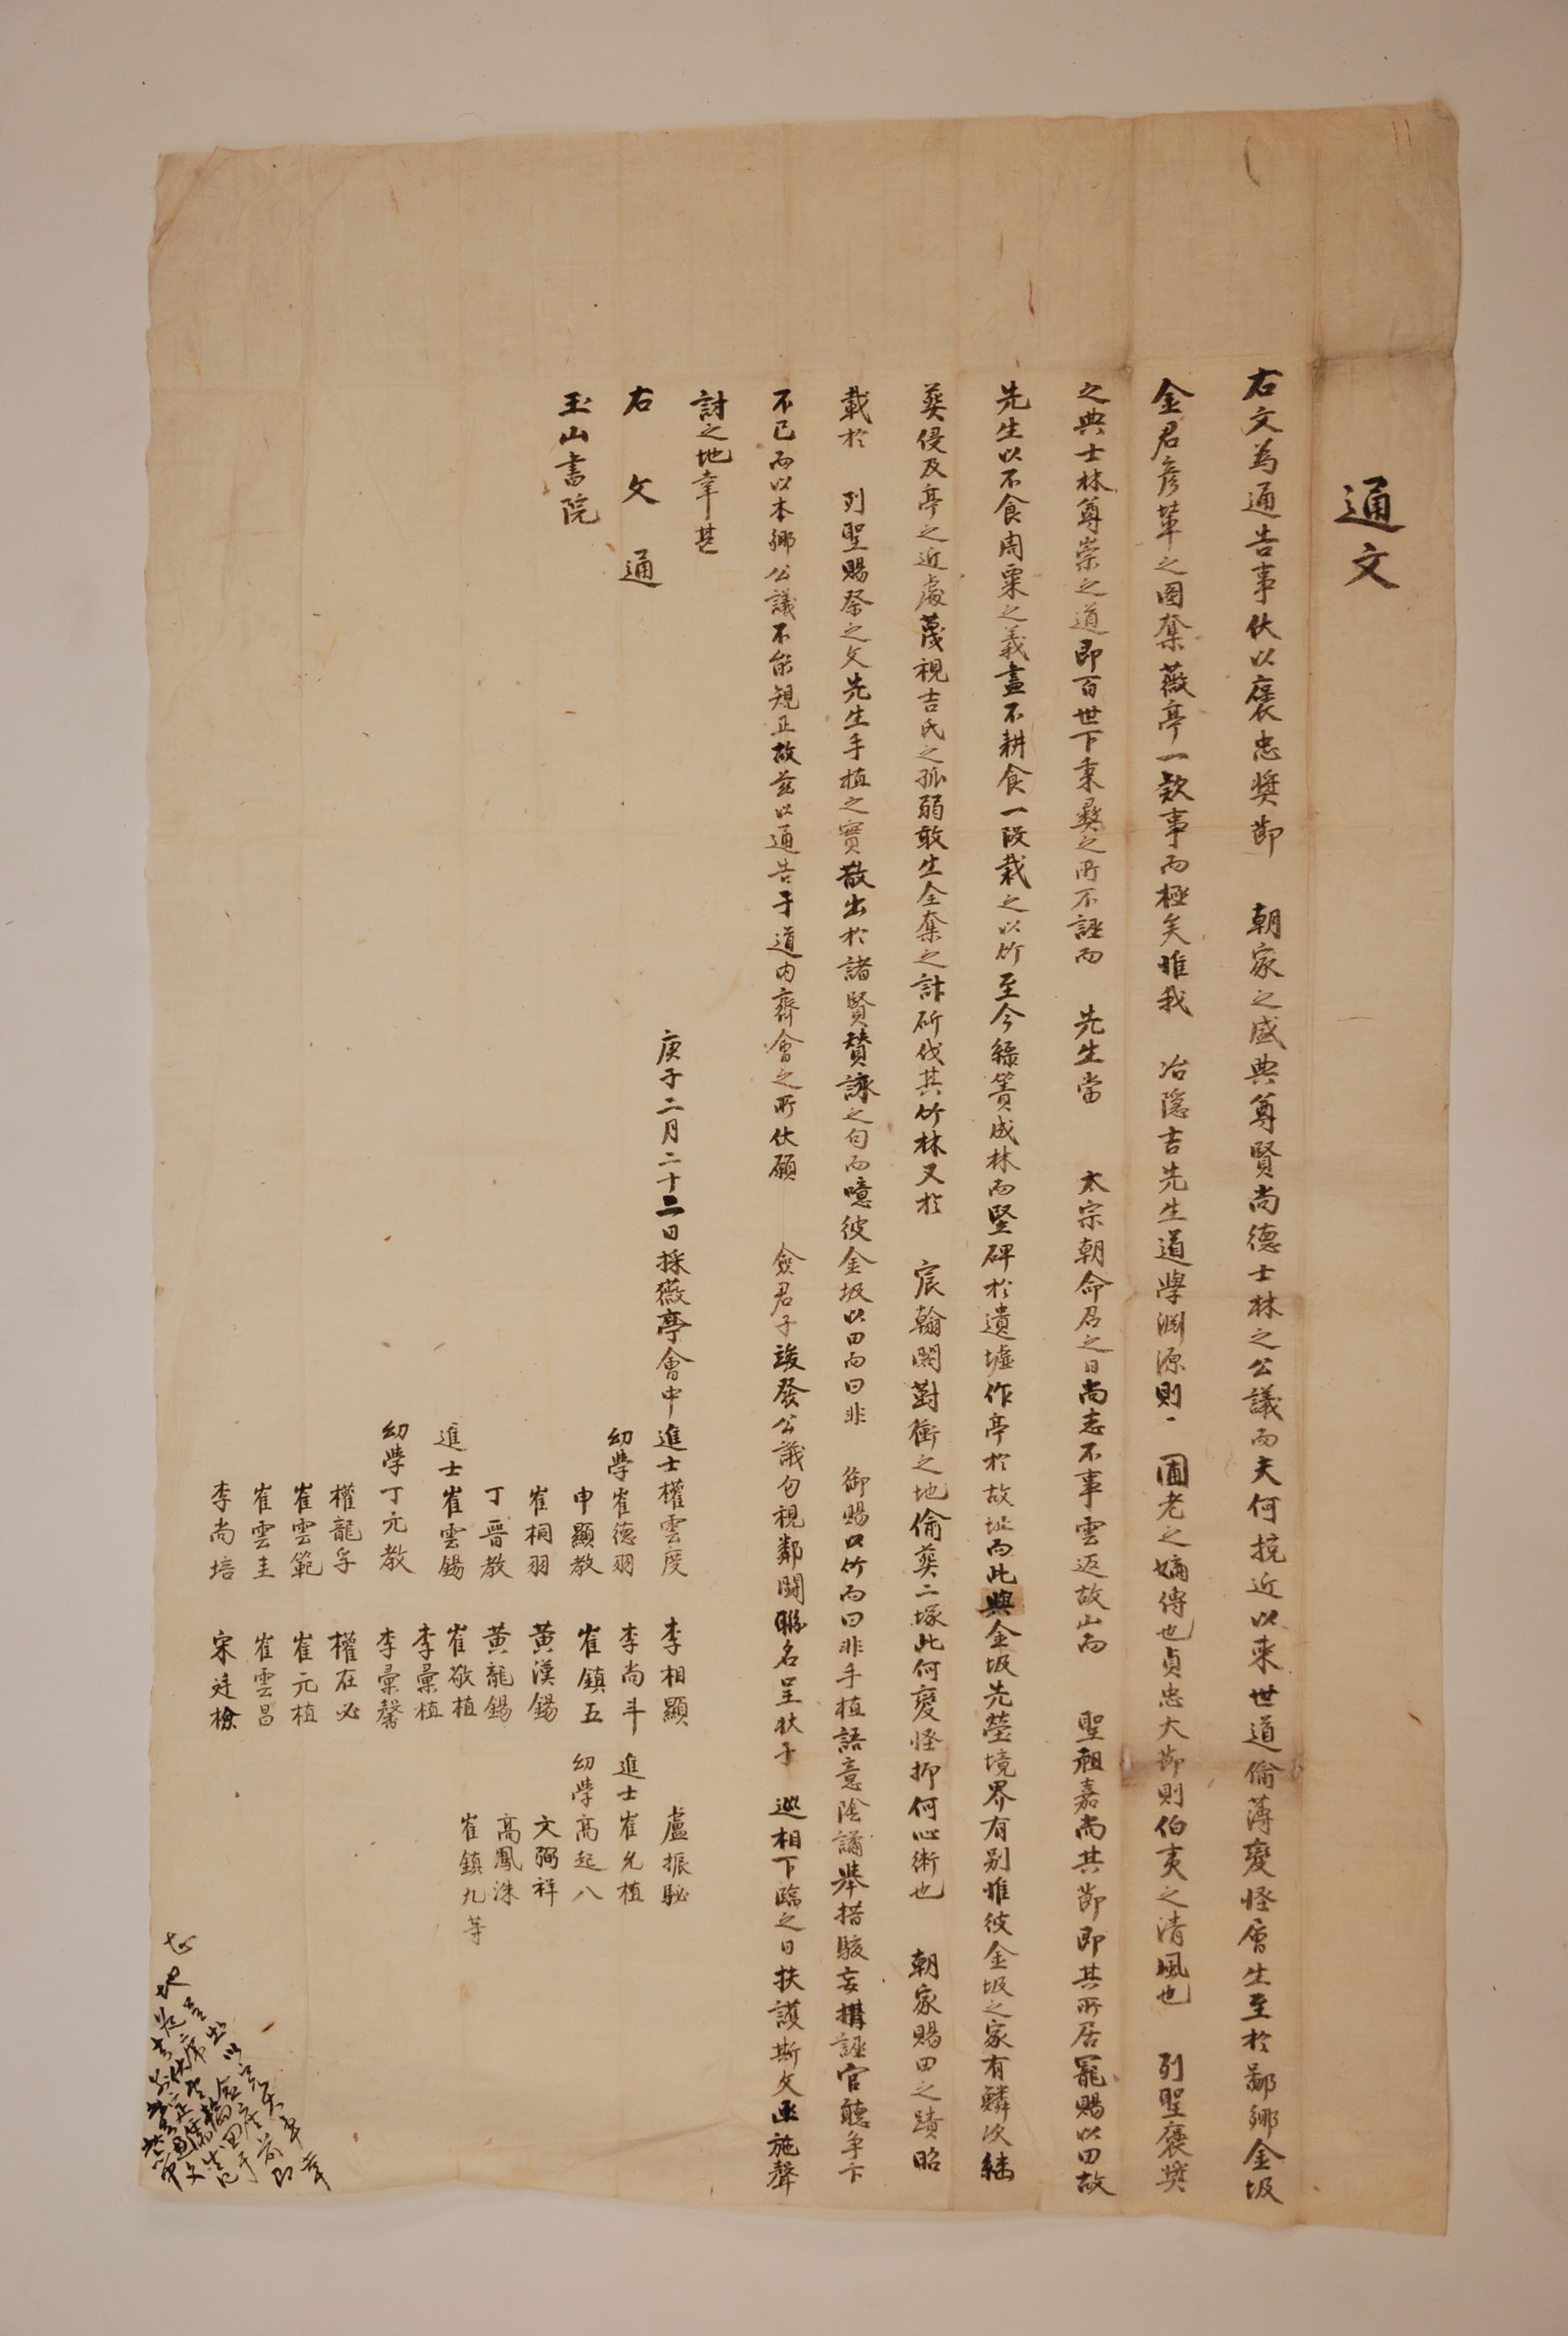 通文
右文為通告事伏以褒忠奬節 朝家之盛典尊賢尚德士林之公議而夫何挽近以来世道偷薄變怪層生至於鄙鄉金圾
金君彦菶之圖奪薇亭一欵事而極矣惟我 冶隱吉先生道學淵源則 圃老之嫡傳也貞忠大節則伯夷之清風也 列聖褒奬
之典士林尊崇之道即百世下秉彛之所不誣而 先生當 太宗朝命召之日尚志不事雲返故山而 聖祖嘉尚其節即其所居寵賜以田故
先生以不食周粟之義盡不耕食一段栽之以竹至今綠簀成林而竪碑於遺墟作亭於故址而此與金圾先塋境界有别惟彼金圾之家有鱗次繼
葬侵及亭之近處蔑視吉氏之孤弱敢生全奪之計斫伐其竹林又於 宸翰閣對衝之地偷葬二塚此何變怪抑何心術也 朝家賜田之蹟昭
載於 列聖賜祭之文先生手植之實散出於諸賢贊詠之句而噫彼金圾以田而曰非 御賜以竹而曰非手植語意陰譎舉措駭妄搆誣官聽争卞
不已而以本鄉公議不能規正故玆以通告于道内齊會之所伏願 僉君子竣發公議勿視鄰閧聯名呈狀于 巡相下臨之日扶護斯文亟施聲
討之地幸甚
右文通
玉山書院
庚子二月二十二日採薇亭會中進士權雲度 李相顯 盧振馝
幼學崔德羽 李尚斗 進士崔允植
申顯教 崔鎮五 幼學高起八
崔桐羽 黄漢錫 文弼祥
丁晋教 黄龍錫 高鳳洙
進士崔雲錫 崔敬植 崔鎮九等
李彙植
幼學丁元教 李彙馨
權龍孚 權在必
崔雲範 崔元植
崔雲圭 崔雲昌
李尚培 宋廷檢